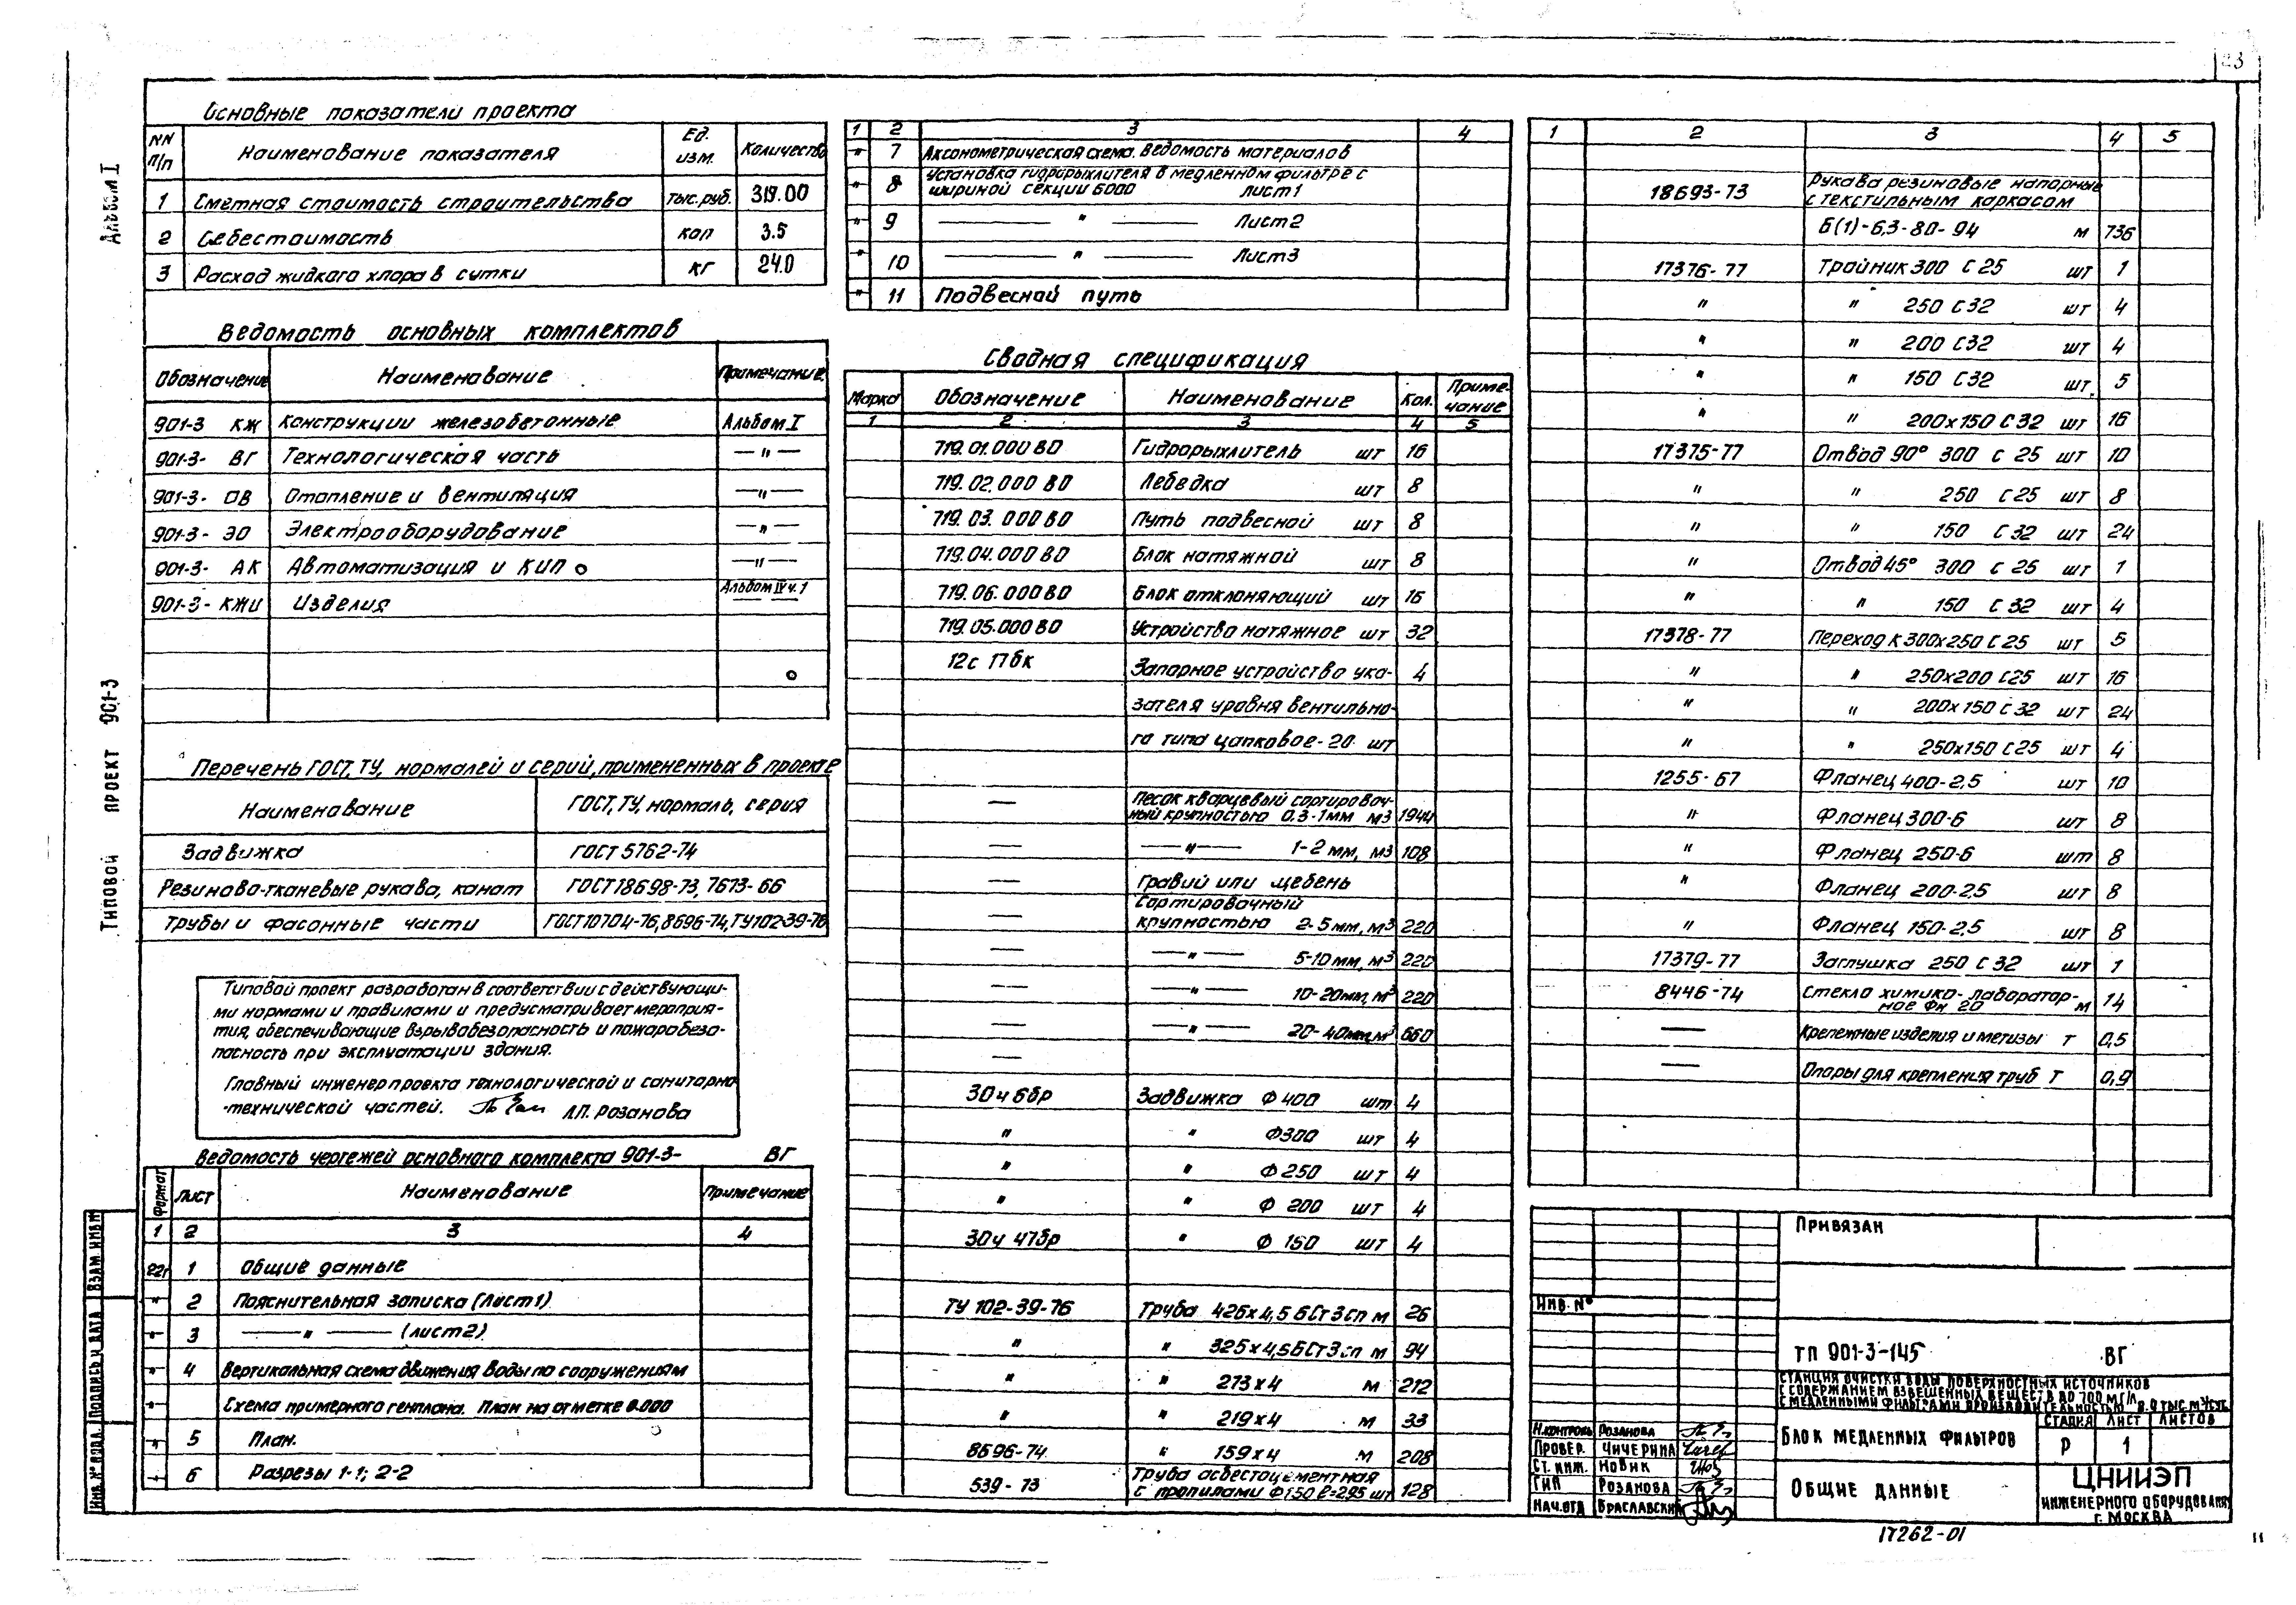 23
Альбом I
Типовой проект 901-3
Основные показатели проекта
NN п/п Наименование показателя Ед. изм. Количество
1 Сметная стоимость строительства тыс.руб. 319.00
2 Себестоимость коп 3.5
3 Расход жидкого хлора в сутки кг 24.0
Ведомость основных комплектов
Обозначение Наименование Примечание
901-3 КЖ Конструкции железобетонные Альбом I
901-3- ВГ Технологическая часть — " —
901-3- ОВ Отопление и вентиляция — " —
901-3- ЭО Электрооборудование — " —
901-3- АК Автоматизация и КИП — " —
901-3- КЖИ Изделия Альбом IV ч.1
Перечень ГОСТ, ТУ, нормалей и серий, примененных в проекте
Наименование ГОСТ, ТУ, нормаль, серия
Задвижка ГОСТ 5762-74
Резиново-тканевые рукава, канат ГОСТ 18698-73, 7673-66
Трубы и фасонные части ГОСТ 10704-76, 8696-74, ТУ102-39-76
Типовой проект разработан в соответствии с действующи-
ми нормами и правилами и предусматривает мероприя-
тия, обеспечивающие взрывобезопасность и пожаробезо-
пасность при эксплуатации здания.
Главный инженер проекта технологической и санитарно
-технической частей. Л.П. Розанова
Ведомость чертежей основного комплекта 901-3- ВГ
Формат Лист Наименование Примечание
1 2 3 4
22г 1 Общие данные
" 2 Пояснительная записка (Лист 1)
" 3 — " — (лист 2)
" 4 Вертикальная схема движения воды по сооружениям
" Схема примерного генплана. План на отметке 0.000
" 5 План.
" 6 Разрезы 1-1; 2-2
1 2 3 4
" 7 Аксонометрическая схема. Ведомость материалов
" 8 Установка гидрорыхлителя в медленном фильтре с
шириной секции 6000 лист 1
" 9 — " — Лист 2
" 10 — " — Лист 3
" 11 Подвесной путь
Сводная спецификация
Марка Обозначение Наименование Кол. Приме-
чание
1 2 3 4 5
719.01.000 ВО Гидрорыхлитель шт 16
719.02.000 ВО Лебедка шт 8
719.03.000 ВО Путь подвесной шт 8
719.04.000 ВО Блок натяжной шт 8
719.06.000 ВО Блок отклоняющий шт 16
719.05.000 ВО Устройство натяжное шт 32
12с 17бк Запорное устройство ука- 4
зателя уровня вентильно-
го типа цапковое-20 шт
— Песок кварцевый сортировоч-
ный крупностью 0,3-1мм м3 1944
— — " — 1-2 мм, м3 108
— Гравий или щебень
Сортировочный
— крупностью 2-5мм, м3 220
— — " — 5-10мм, м3 220
— — " — 10-20мм, м3 220
— — " — 20-40мм, м3 660
—
30ч 6бр Задвижка Ф 400 шт 4
" " Ф300 шт 4
" " Ф 250 шт 4
" " Ф 200 шт 4
30ч 47бр " Ф 150 шт 4
ТУ 102-39-76 Труба 426х4,5 БСт 3сп м 26
" " 325х4,5БСт3сп м 94
" " 273х4 м 212
" " 219х4 м 33
8696-74 " 159х4 м 208
539-73 Труба асбестоцементная
с пропилами Ф150 ℓ=295 шт 128
1 2 3 4 5
18693-73 Рукава резиновые напорные
с текстильным каркасом
Б(1)-6,3-80-94 м 736
17376-77 Тройник 300 С 25 шт 1
" " 250 С32 шт 4
" " 200 С32 шт 4
" " 150 С32 шт. 5
" " 200х150 С 32 шт 16
17375-77 Отвод 90° 300 С 25 шт 10
" " 250 С25 шт 8
" " 150 С 32 шт 24
" Отвод 45° 300 С 25 шт 1
" " 150 С 32 шт 4
17378-77 Переход К 300х250 С 25 шт 5
" " 250х200 С25 шт 16
" " 200х150 С 32 шт 24
" " 250х150 С25 шт 4
1255-67 Фланец 400-2,5 шт 10
" Фланец 300-6 шт 8
" Фланец 250-6 шт 8
" Фланец 200-2,5 шт 8
" Фланец 150-2,5 шт 8
17379-77 Заглушка 250 С 32 шт 1
8446-74 Стекло химико-лаборатор-
ное Фн 20 м 14
— Крепежные изделия и метизы т 0,5
— Опоры для крепления труб т 0,9
Привязан
Инв. №
ТП 901-3-145 ВГ
Станция очистки воды поверхностных источников
с содержанием взвешенных веществ до 700 мг/л
с медленными фильтрами производительностью 8.0 тыс. м³/сут.
Н.контроль Розанова
Провер. Чичерина
Ст. инж. Новик
ГИП Розанова
Нач.отд Браславский
Блок медленных фильтров
Стадия Лист Листов
Р 1
Общие данные
ЦНИИЭП
инженерного оборудования
г. Москва
Инв.№ подл. Подпись и дата Взам инв№
17262-01
11